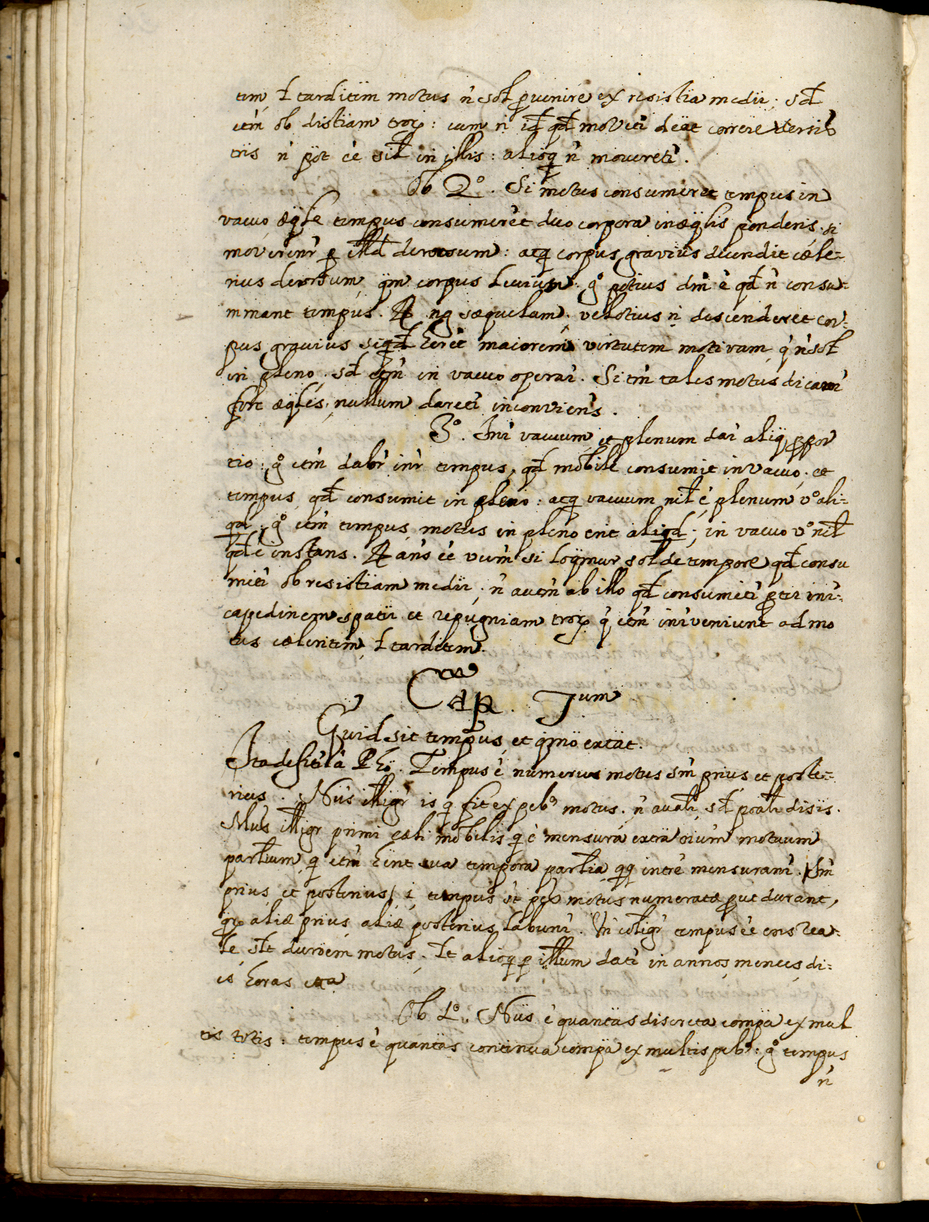 tem, l tarditem motus ñ sol' pvenire ex resistia medii : sd'
etm̃ ob distiam trox : cum ñ id' qd' moveti deat correre
triis ñ pōt eē sil' in illis : alioq ñ moveretī.
Ob 2°. Si motus consumeret tempus in
vacuo æq̃le tempus consumeret duo corpora inæq̃lis ponderis, si
moverenr̄ p ill'd deorsum : atq corpus gravius decendit cæle-
rius deorsum qm̃ corpus levium. g° potius dm̃ ē qd' ñ consu-
mmant tempus. R. ng sæquelam. velotius ñ descenderet cor-
pus gravius siqd' heret maiorem virtutem motivam q̄ ñ sol'
in pleno, sd' etm̃ in vacuo operar̄. Si tm̃ tales motus dicanr̄
fore æq̃les, nullum daretī inconviens.
3°. Inr̄ vacuum et plenum dar̄ aliq ppor
tio : g° etm̃ dabr̄ inr̄ tempus, qd' mobile consumit in vacuo, et
tempus qd' consumit in pleno : atq vacuum nil' ē, plenum v° ali-
qd', g° etm̃ tempus motus in pleno erit aliqd'; in vacuo v° nil'
qd' ē instans. R. añs eē verm̃ si loqmur sol' de tempore qd' consu
mitī ob resistiam medii, ñ autm̃ ab illo qd' consumitī pter inr̄-
capedinem spatii et repugniam trox q̄ etm̃ inr̄veniunt ad mo
tus cæleritem, l tarditem.
Cap. Jum
Quid sit tempus, et qmō extat.
Ita defitī à Phō. Tempus ē numerus motus sm̃ prius et poste-
rius. Nũs ill'igr̄ is q fit ex ptbs motus, ñ av'ali, sd' po'ali disiis.
Mus ill'igr primi cæli mobilis q ē mensura extra oium motuum
partium, q etm̃ hent sua tempora partia qq intre mensuranr̄. Sm̃
prius et posterius, i. tempus ut ptes motus numeratæ put durant,
qx aliæ prius aliæ posterius labunr̄. Vñ coligr̄ tempus eē ens rea-
le ste duriem motus. Et alioq p illum datī in annos, menses, di-
es horas etta
Ob 1°. Nũs ē quantas discreta compā ex mul
tis : tempus ē quantas continua compā ex multis ptbs : g° tempus
ñ